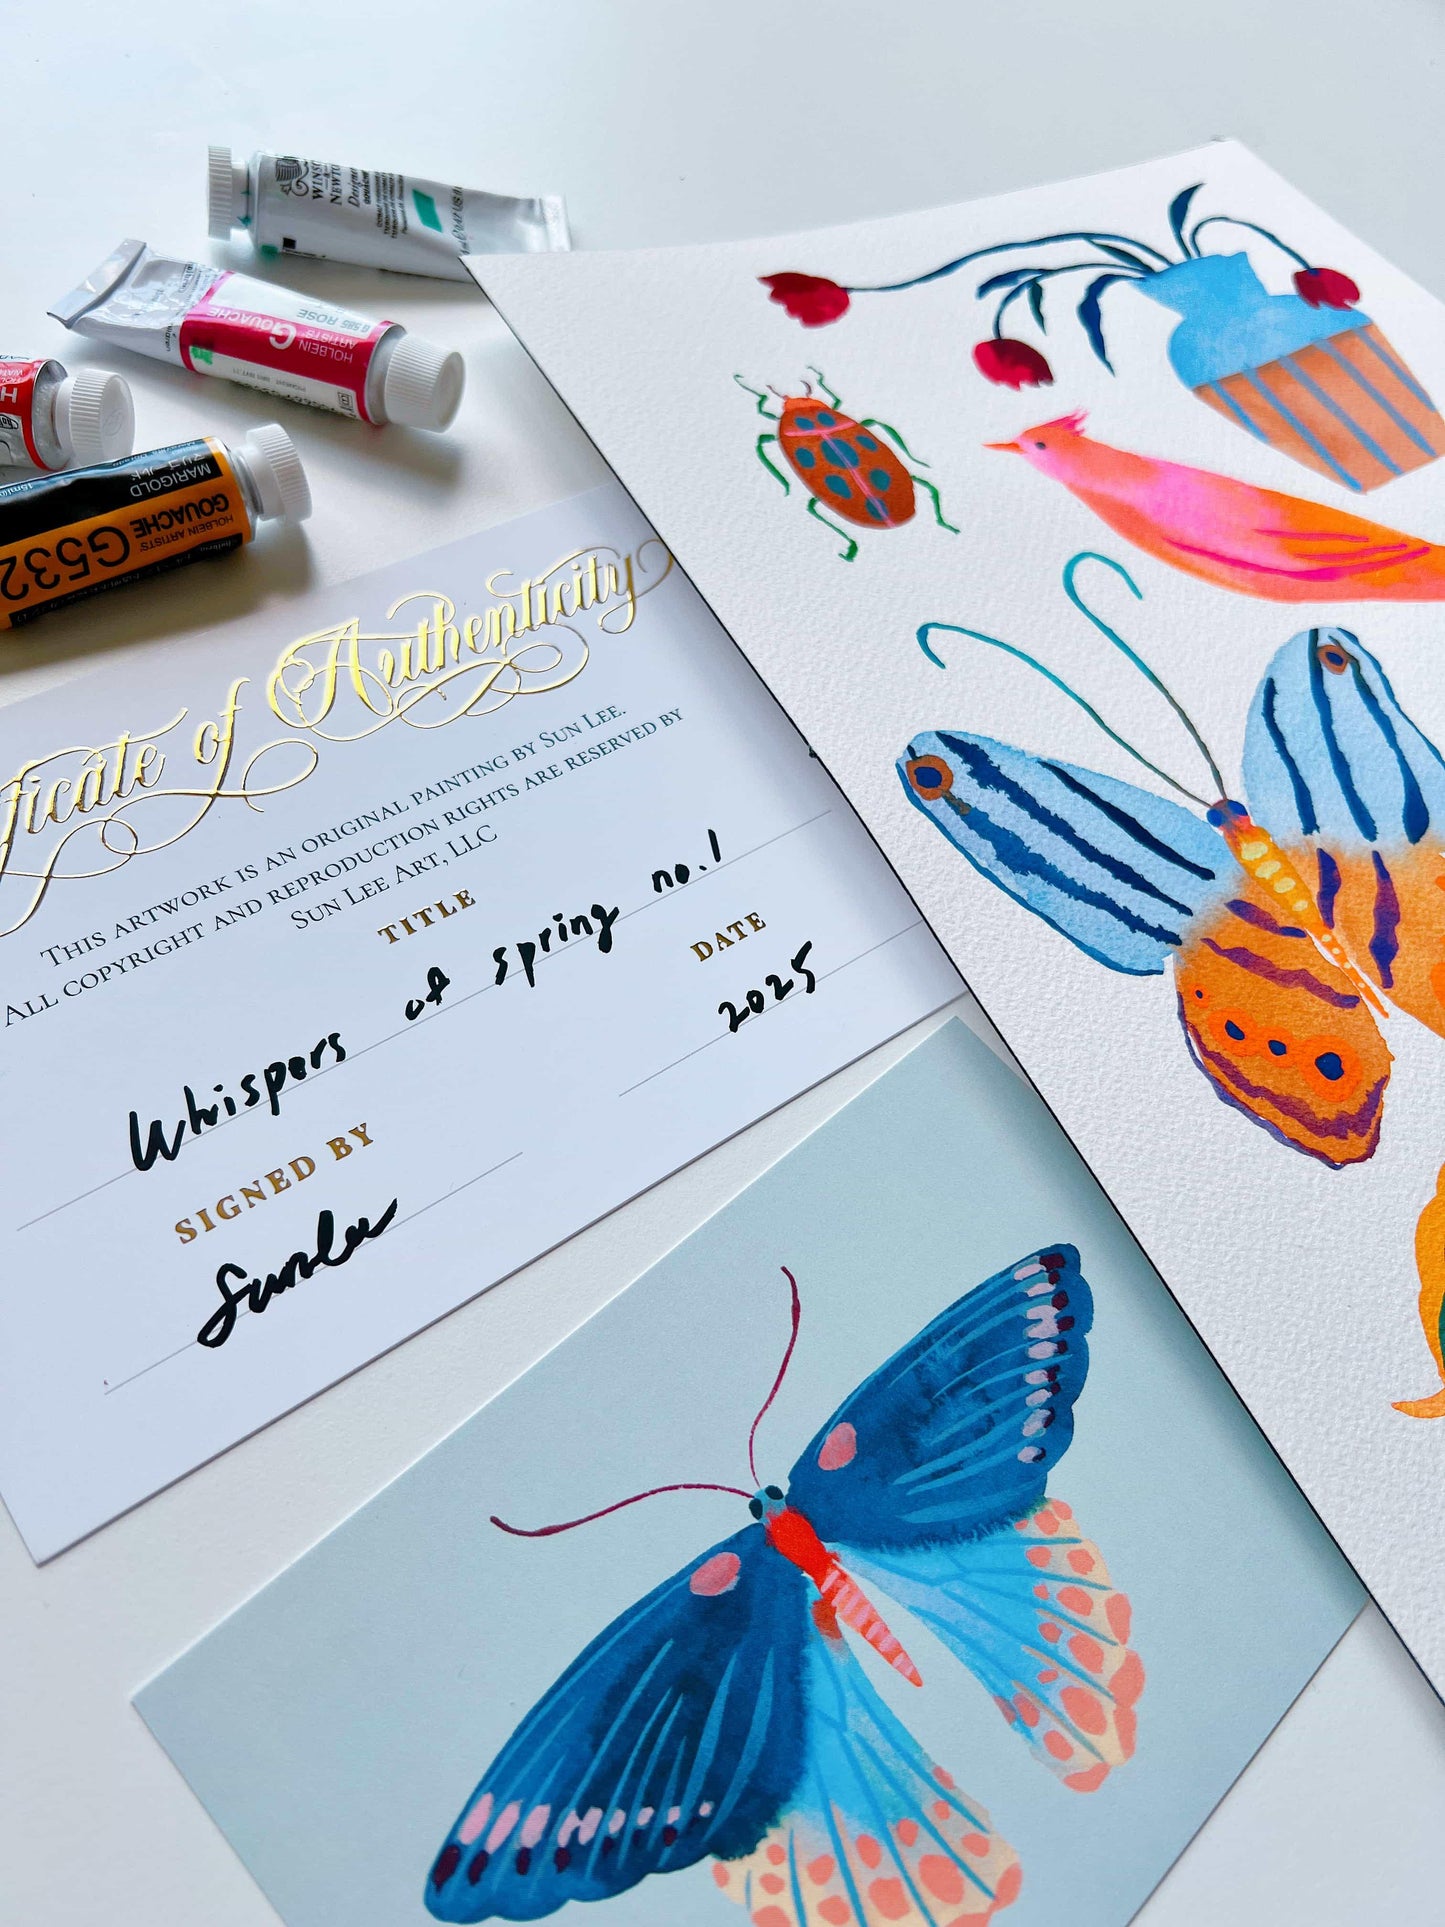 WINSOR
NEWTON
Designers
GOUACHE
HOLBEIN
ARTISTS'
GOUACHE
G585 ROSE
PIGMENT
H
マリゴールド
MARIGOLD
HOLBEIN ARTISTS'
GOUACHE
G532
15ml
ficate of Authenticity
THIS ARTWORK IS AN ORIGINAL PAINTING BY SUN LEE.
ALL COPYRIGHT AND REPRODUCTION RIGHTS ARE RESERVED BY
SUN LEE ART, LLC
TITLE
Whispers of spring no.1
DATE
2025
SIGNED BY
Sunlee